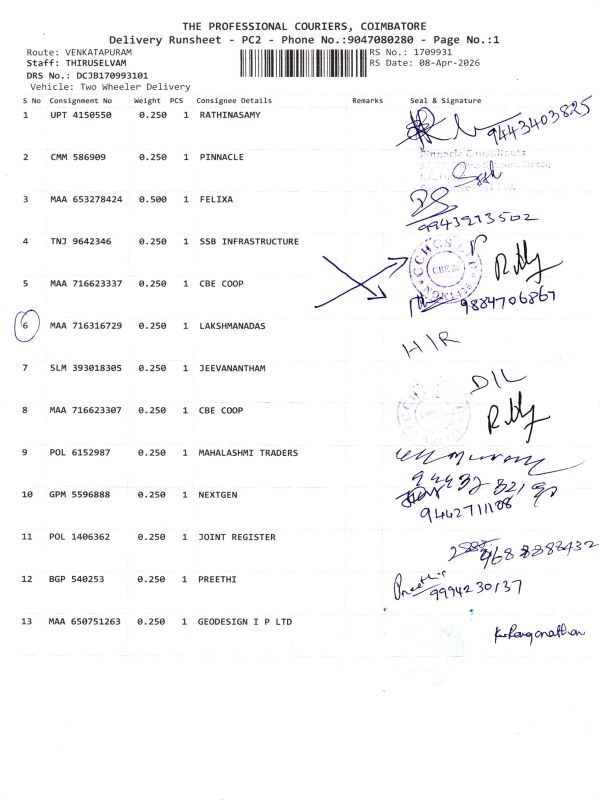 THE PROFESSIONAL COURIERS, COIMBATORE
Delivery Runsheet - PC2 - Phone No.:9047080280 - Page No.:1
Route: VENKATAPURAM RS No.: 1709931
Staff: THIRUSELVAM RS Date: 08-Apr-2026
DRS No.: DCJB170993101
Vehicle: Two Wheeler Delivery
S No Consignment No Weight PCS Consignee Details Remarks Seal & Signature
1 UPT 4150550 0.250 1 RATHINASAMY 9443403825
2 CMM 586909 0.250 1 PINNACLE Pinnacle Consultants
3 MAA 653278424 0.500 1 FELIXA
9943913502
4 TNJ 9642346 0.250 1 SSB INFRASTRUCTURE
5 MAA 716623337 0.250 1 CBE COOP
9884706867
6 MAA 716316729 0.250 1 LAKSHMANADAS H/R
7 SLM 393018305 0.250 1 JEEVANANTHAM D/L
8 MAA 716623307 0.250 1 CBE COOP
9 POL 6152987 0.250 1 MAHALASHMI TRADERS
10 GPM 5596888 0.250 1 NEXTGEN
9442711108
11 POL 1406362 0.250 1 JOINT REGISTER
12 BGP 540253 0.250 1 PREETHI Preethi
9994230137
13 MAA 650751263 0.250 1 GEODESIGN I P LTD